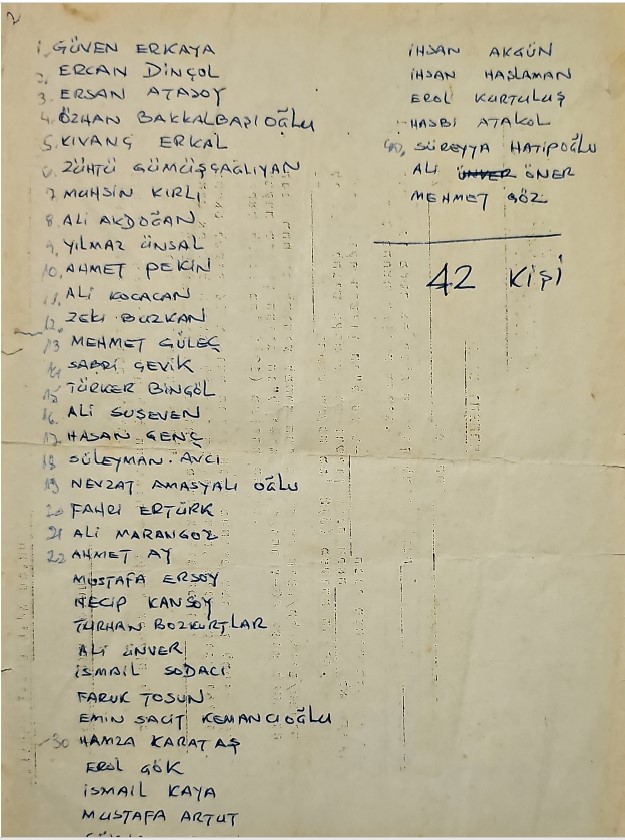 2
1. GÜVEN ERKAYA
2. ERCAN DİNÇOL
3. ERSAN ATASOY
4. ÖZHAN BAKKALBAŞIOĞLU
5. KIVANÇ ERKAL
6. ZÜHTÜ GÜMÜŞÇAĞLIYAN
7. MUHSİN KIRLI
8. ALİ AKDOĞAN
9. YILMAZ ÜNSAL
10. AHMET PEKİN
11. ALİ KOCACAN
12. ZEKİ BOZKAN
13 MEHMET GÜLEÇ
14 SABRİ ÇEVİK
15 TÜRKER BİNGÖL
16. ALİ SUSEVEN
17. HASAN GENÇ
18 SÜLEYMAN AVCI
19 NEVZAT AMASYALI OĞLU
20 FAHRİ ERTÜRK
21 ALİ MARANGOZ
22 AHMET AY
MUSTAFA ERSOY
NECİP KANSOY
TURHAN BOZKURTLAR
ALİ ÜNVER
İSMAİL SODACI
FARUK TOSUN
EMİN SACİT KEMANCIOĞLU
30 HAMZA KARATAŞ
EROL GÖK
İSMAİL KAYA
MUSTAFA ARTUT
İHSAN AKGÜN
İHSAN HASLAMAN
EROL KURTULUŞ
HASBİ ATAKOL
40, SÜREYYA HATİPOĞLU
ALİ ÜNVER ÖNER
MEHMET GÖZ
42 KİŞİ